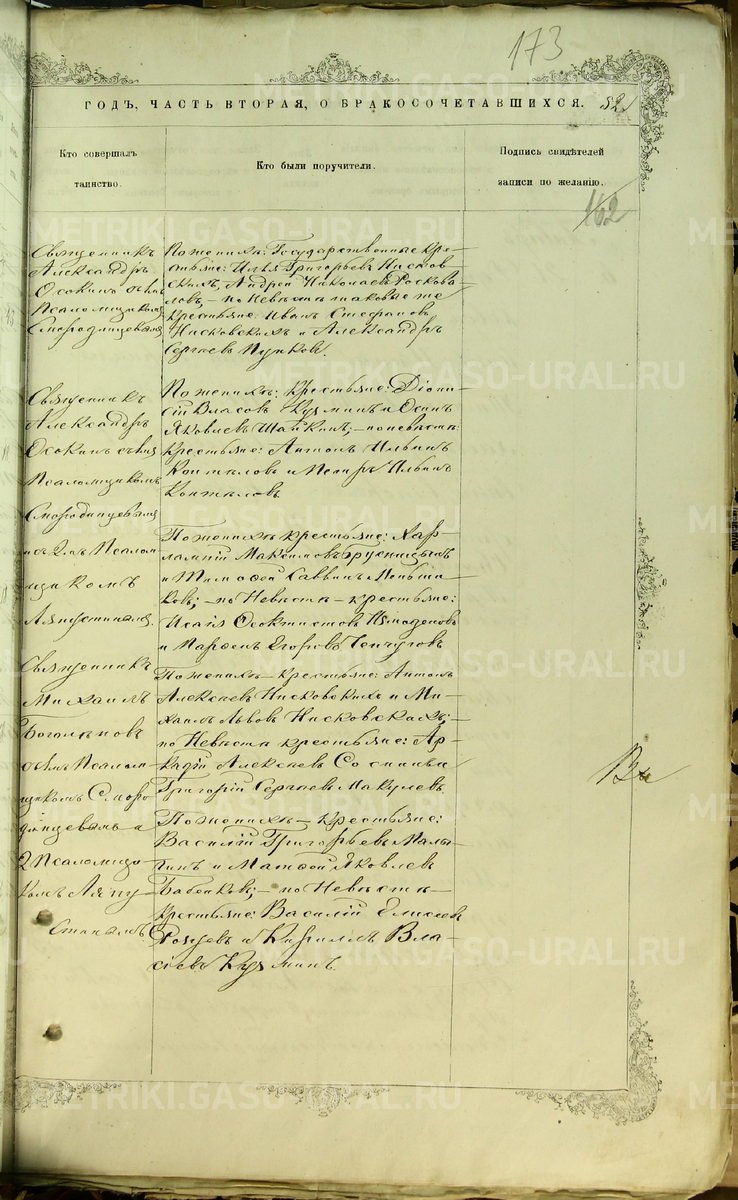 173
ГОДЪ, ЧАСТЬ ВТОРАЯ, О БРАКОСОЧЕТАВШИХСЯ. 82
Кто совершалъ
таинство.
Кто были поручители.
Подпись свидѣтелей
записи по желанію.
162
Священникъ
Александръ
Осокинъ съ
Псаломщикомъ
Смородинцевымъ
По женихѣ: Государственные кре-
стьяне: Илья Григорьевъ Нисков-
скихъ, Андрей Николаевъ Роскова-
ловъ, - по Невѣстѣ таковые же
Крестьяне: Иванъ Стефановъ
Нисковскихъ и Александръ
Сергѣевъ Пупковъ.
Священникъ
Александръ
Осокинъ съ
Псаломщикомъ
Смородинцевымъ
и съ 2мъ Псалом
щикомъ
Ляпустинымъ.
По женихѣ: крестьяне: Діони-
сій Власовъ Кузминъ и Осипъ
Яковлевъ Шайкинъ; - по невѣстѣ:
крестьяне: Антонъ Ильинъ
Коптѣловъ и Петръ Ильинъ
Коптѣловъ
По женихѣ крестьяне: Хар-
лампій Максимовъ
и Тимофей Саввинъ Меньши-
ковъ; - по Невѣстѣ - крестьяне:
Исаія Ѳеоктистовъ
и Парѳенъ Егоровъ
Священникъ
Михаилъ
Боголѣповъ
съ 1мъ Псалом-
щикомъ Сморо
динцевымъ и
2 Псаломщи-
комъ Ляпу-
стинымъ
По женихѣ - крестьяне: Антонъ
Алексѣевъ Нисковскихъ и Ми-
хаилъ Львовъ Нисковскихъ; -
по Невѣстѣ крестьяне: Ар-
кадій Алексѣевъ Соснинъ
Григорій Сергѣевъ Макулевъ
По женихѣ - крестьяне:
Василій Григорьевъ Малы-
гинъ и Матѳей Яковлевъ
Бабенковъ; - по Невѣстѣ -
крестьяне: Василій Елисеевъ
и Кириллъ Вла-
сіевъ Кузминъ.
METRIKI.GASO-URAL.RU